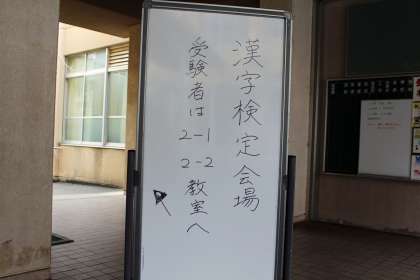 漢字検定会場
受験者は
2-1
2-2
教室へ